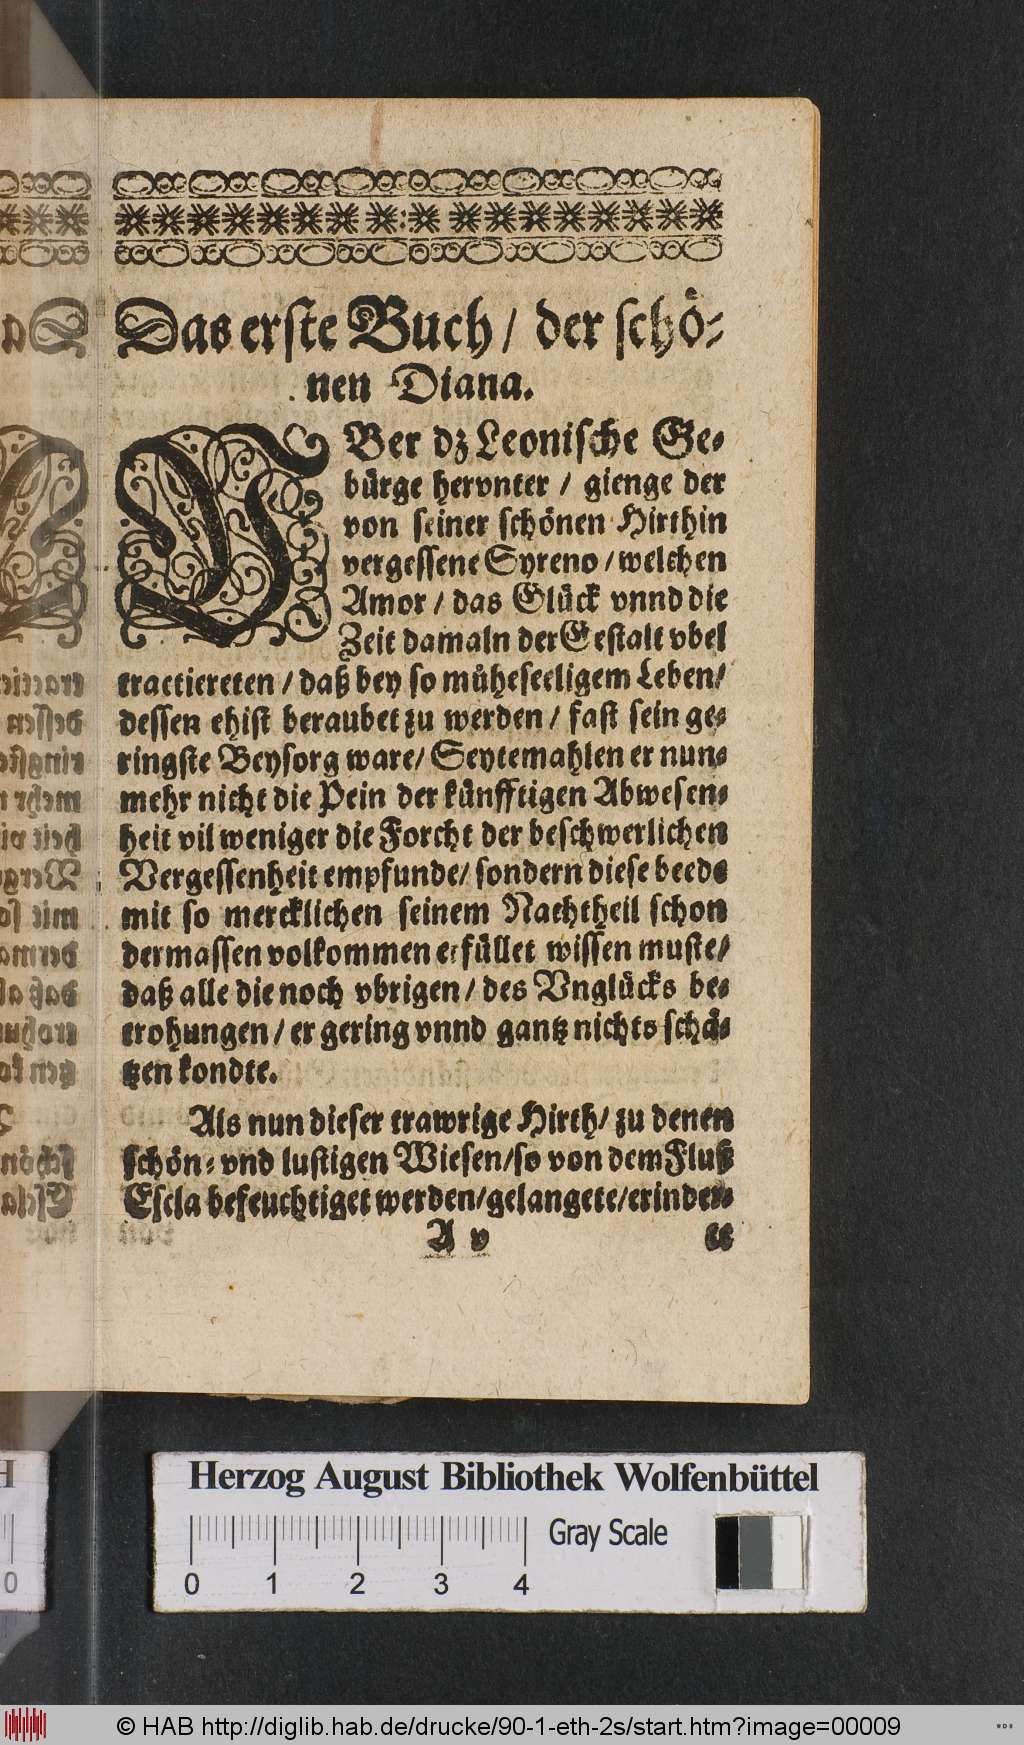 Das erste Buch / der schö-
nen Diana.
VBer dz Leonische Ge-
bürge hervnter / gienge der
von seiner schönen Hirthin
vergessene Syreno / welchen
Amor / das Glück vnnd die
Zeit damaln der Gestalt vbel
tractiereten / daß bey so müheseeligem Leben /
dessen ehist beraubet zu werden / fast sein ge-
ringste Beysorg ware / Seytemahlen er nun-
mehr nicht die Pein der künfftigen Abwesen-
heit vil weniger die Forcht der beschwerlichen
Vergessenheit empfunde / sondern diese beede
mit so mercklichen seinem Nachtheil schon
dermassen volkommen erfüllet wissen muste /
daß alle die noch vbrigen / des Vnglücks be-
trohungen / er gering vnnd gantz nichts schä-
tzen kondte.
Als nun dieser trawrige Hirth / zu denen
schön- vnd lustigen Wiesen / so von dem Fluß
Escla befeuchtiget werden / gelangete / erinder-
A v
te
Herzog August Bibliothek Wolfenbüttel
0 1 2 3 4 Gray Scale
© HAB http://diglib.hab.de/drucke/90-1-eth-2s/start.htm?image=00009